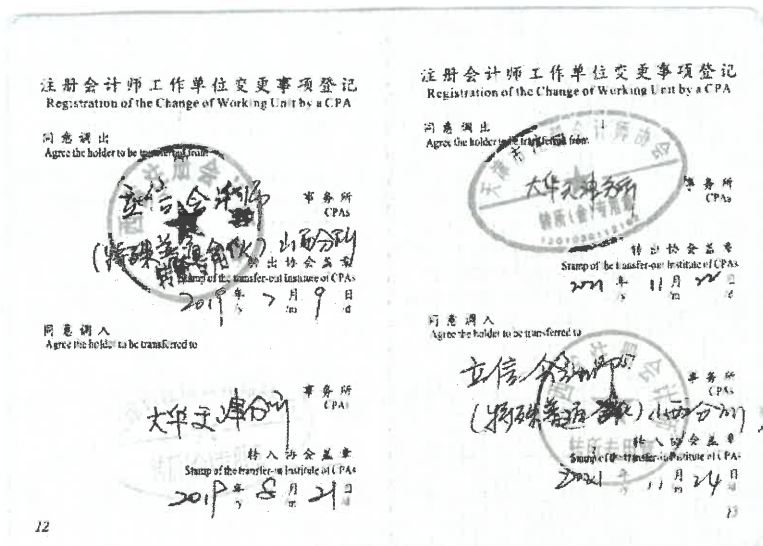 注册会计师工作单位变更事项登记
Registration of the Change of Working Unit by a CPA
同意调出
Agree the holder to be transferred from
立信会计师
事务所
CPAs
(特殊普通合伙)山西分所
转出协会盖章
Stamp of the transfer-out Institute of CPAs
2019年7月9日
y m d
同意调入
Agree the holder to be transferred to
大华天津分所
事务所
CPAs
转入协会盖章
Stamp of the transfer-in Institute of CPAs
2019年8月21日
y m d
12
注册会计师工作单位变更事项登记
Registration of the Change of Working Unit by a CPA
同意调出
Agree the holder to be transferred from
天津市注册会计师协会
大华天津分所
事务所
CPAs
转所(会)专用章
转出协会盖章
Stamp of the transfer-out Institute of CPAs
2021年11月22日
y m d
同意调入
Agree the holder to be transferred to
立信会计师
事务所
CPAs
(特殊普通合伙)山西分所
转所专用章
转入协会盖章
Stamp of the transfer-in Institute of CPAs
2021年11月24日
y m d
13